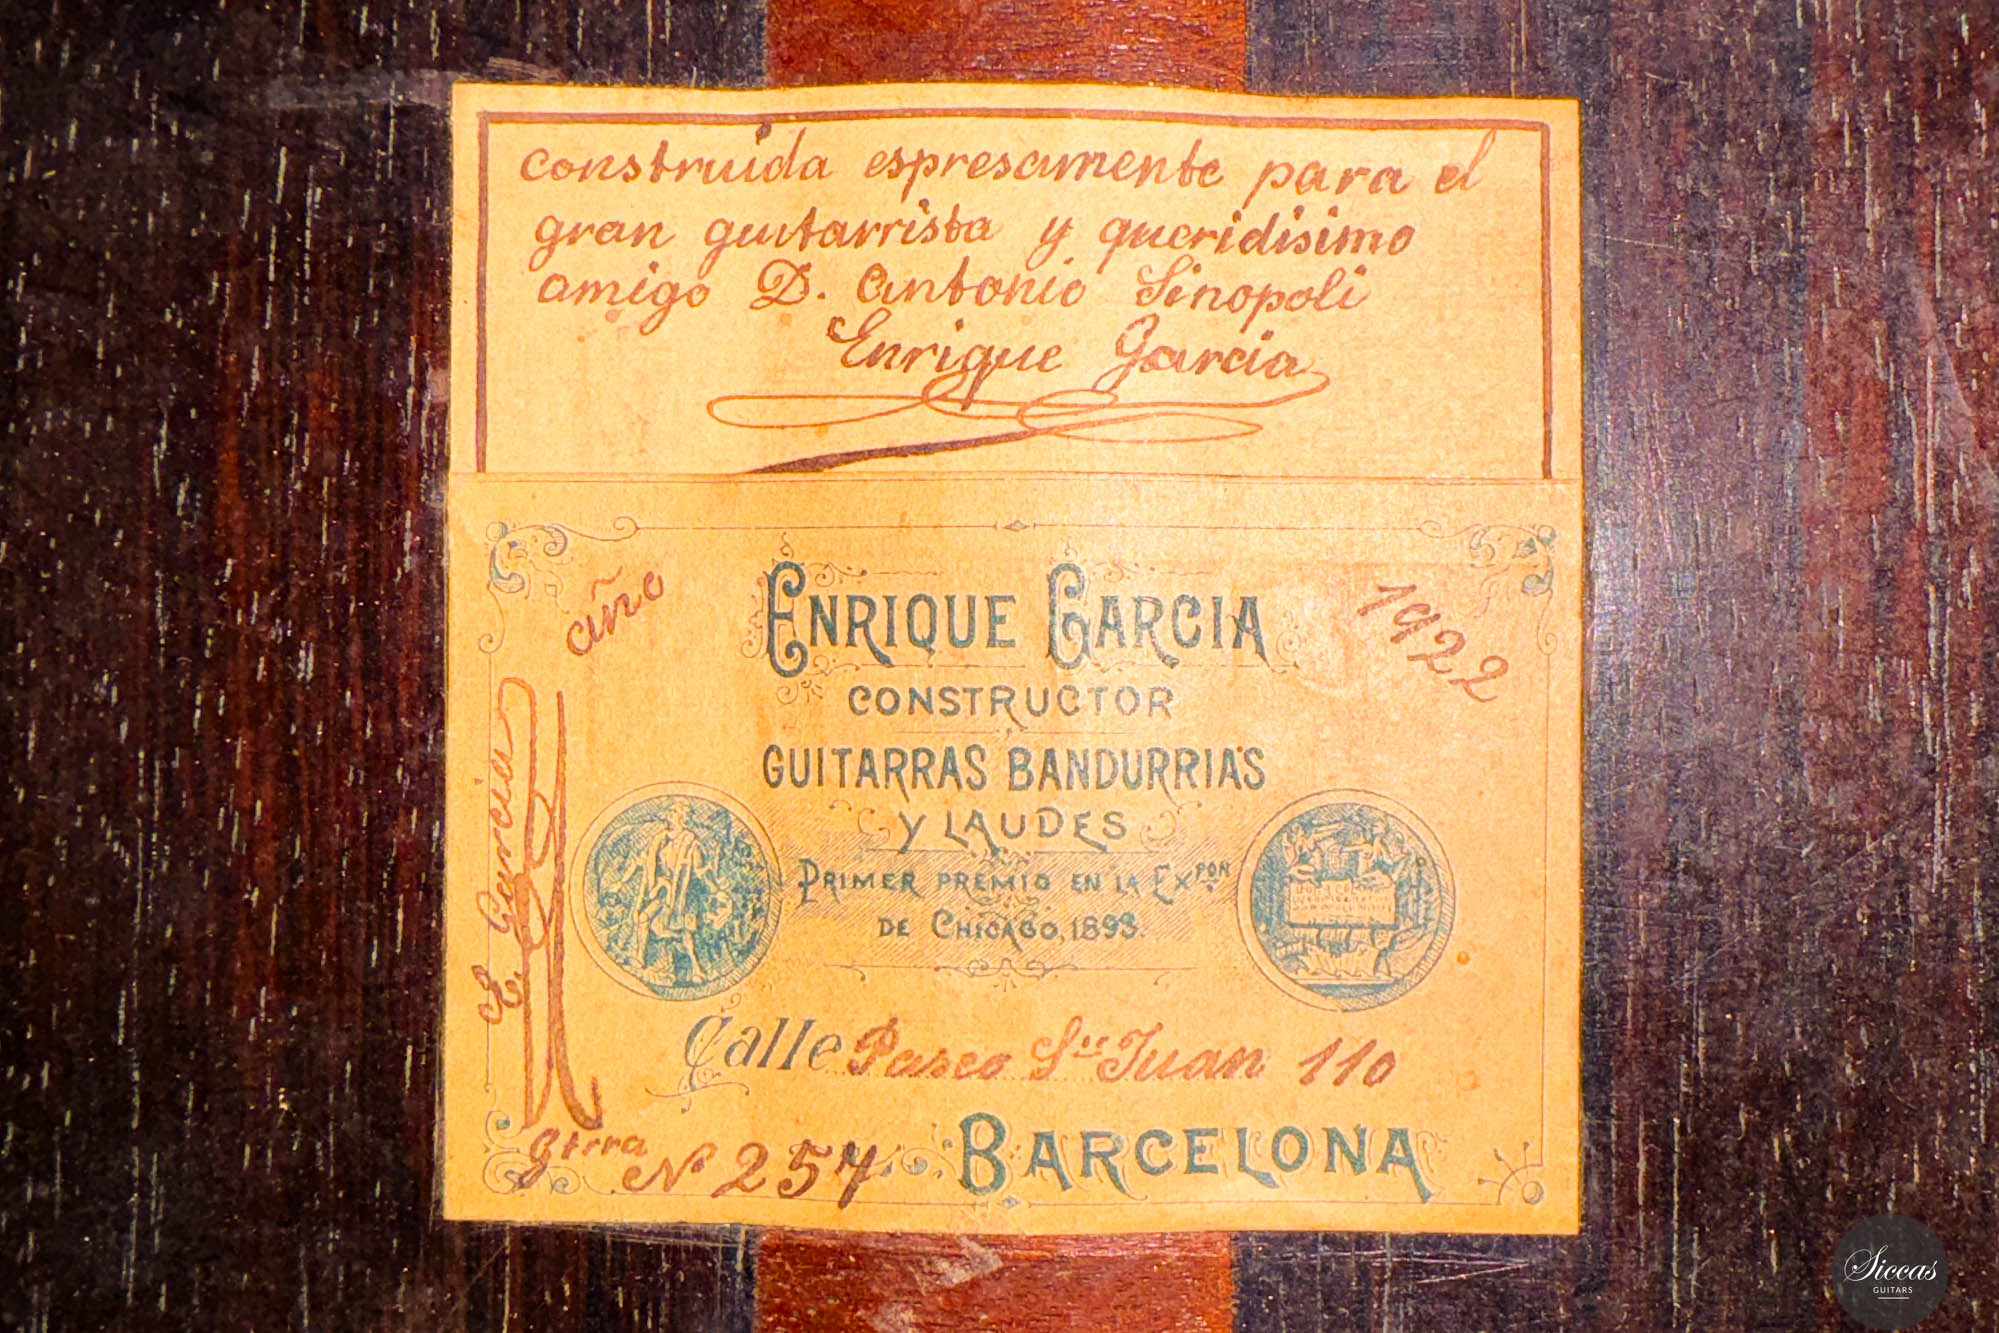 construida espresamente para el
gran guitarrista y queridisimo
amigo D. Antonio Sinopoli
Enrique Garcia
año
1922
ENRIQUE GARCIA
CONSTRUCTOR
GUITARRAS BANDURRIAS
Y LAUDES
PRIMER PREMIO EN LA EXPON.
DE CHICAGO, 1893.
E. Garcia
Calle Paseo Sn Juan 110
gtrra No 257. BARCELONA
Siccas
GUITARS